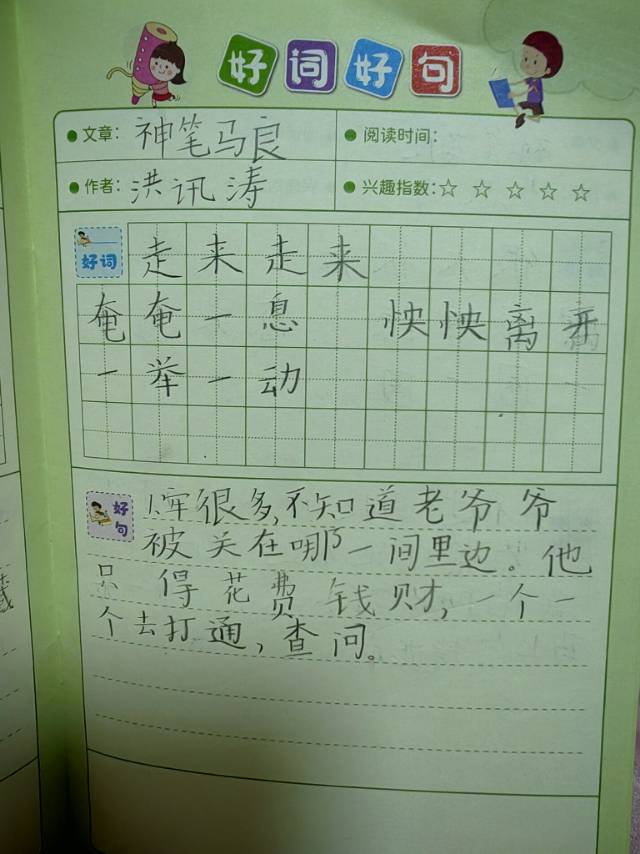 好词好句
文章：神笔马良
阅读时间：
作者：洪讯涛
兴趣指数：☆ ☆ ☆ ☆ ☆
好词
走来走来
奄奄一息 怏怏离开
一举一动
好句
1.牢很多，不知道老爷爷
被关在哪一间里边。他
只得花费钱财，一个一
个去打通，查问。